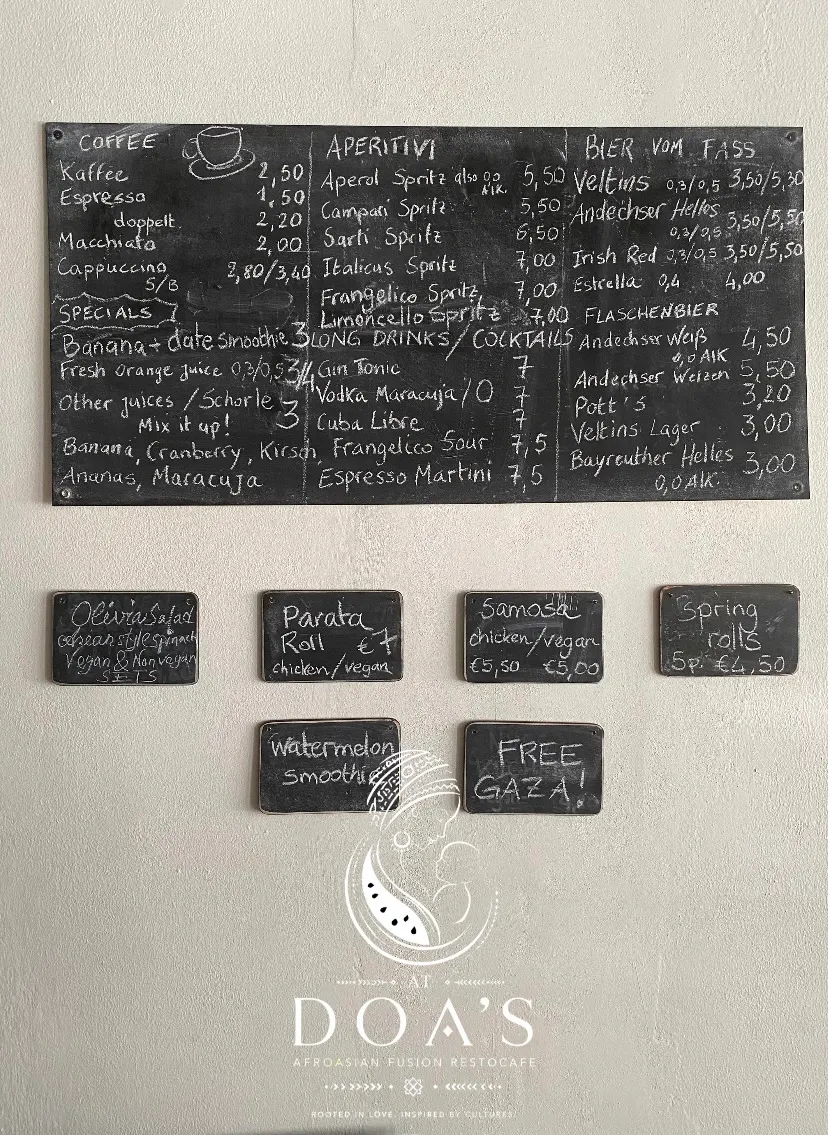 COFFEE
Kaffee 2,50
Espresso 1,50
doppelt 2,20
Macchiato 2,00
Cappuccino 2,80/3,40
S/B
SPECIALS
Banana + date smoothie 3
Fresh Orange Juice 0,3/0,5 3/4
Other juices / Schorle 3
Mix it up!
Banana, Cranberry, Kirsch,
Ananas, Maracuja
APERITIVI
Aperol Spritz also 0,0 Alk. 5,50
Campari Spritz 5,50
Sarti Spritz 6,50
Italicus Spritz 7,00
Frangelico Spritz 7,00
Limoncello Spritz 7,00
LONG DRINKS / COCKTAILS
Gin Tonic 7
Vodka Maracuja/O 7
Cuba Libre 7
Frangelico Sour 7,5
Espresso Martini 7,5
BIER VOM FASS
Veltins 0,3/0,5 3,50/5,30
Andechser Helles
0,3/0,5 3,50/5,50
Irish Red 0,3/0,5 3,50/5,50
Estrella 0,4 4,00
FLASCHENBIER
Andechser Weiß 4,50
0,0 Alk
Andechser Weizen 5,50
Pott's 3,20
Veltins Lager 3,00
Bayreuther Helles 3,00
0,0 Alk.
Olivia Salad
style spinach
Vegan & Non vegan
SETS
Parata
Roll €7
chicken/vegan
Samosa
chicken/vegan
€5,50 €5,00
Spring
rolls
5p. €4,50
watermelon
smoothie
FREE
GAZA!
AT
DOA'S
AFROASIAN FUSION RESTOCAFE
ROOTED IN LOVE. INSPIRED BY CULTURES.